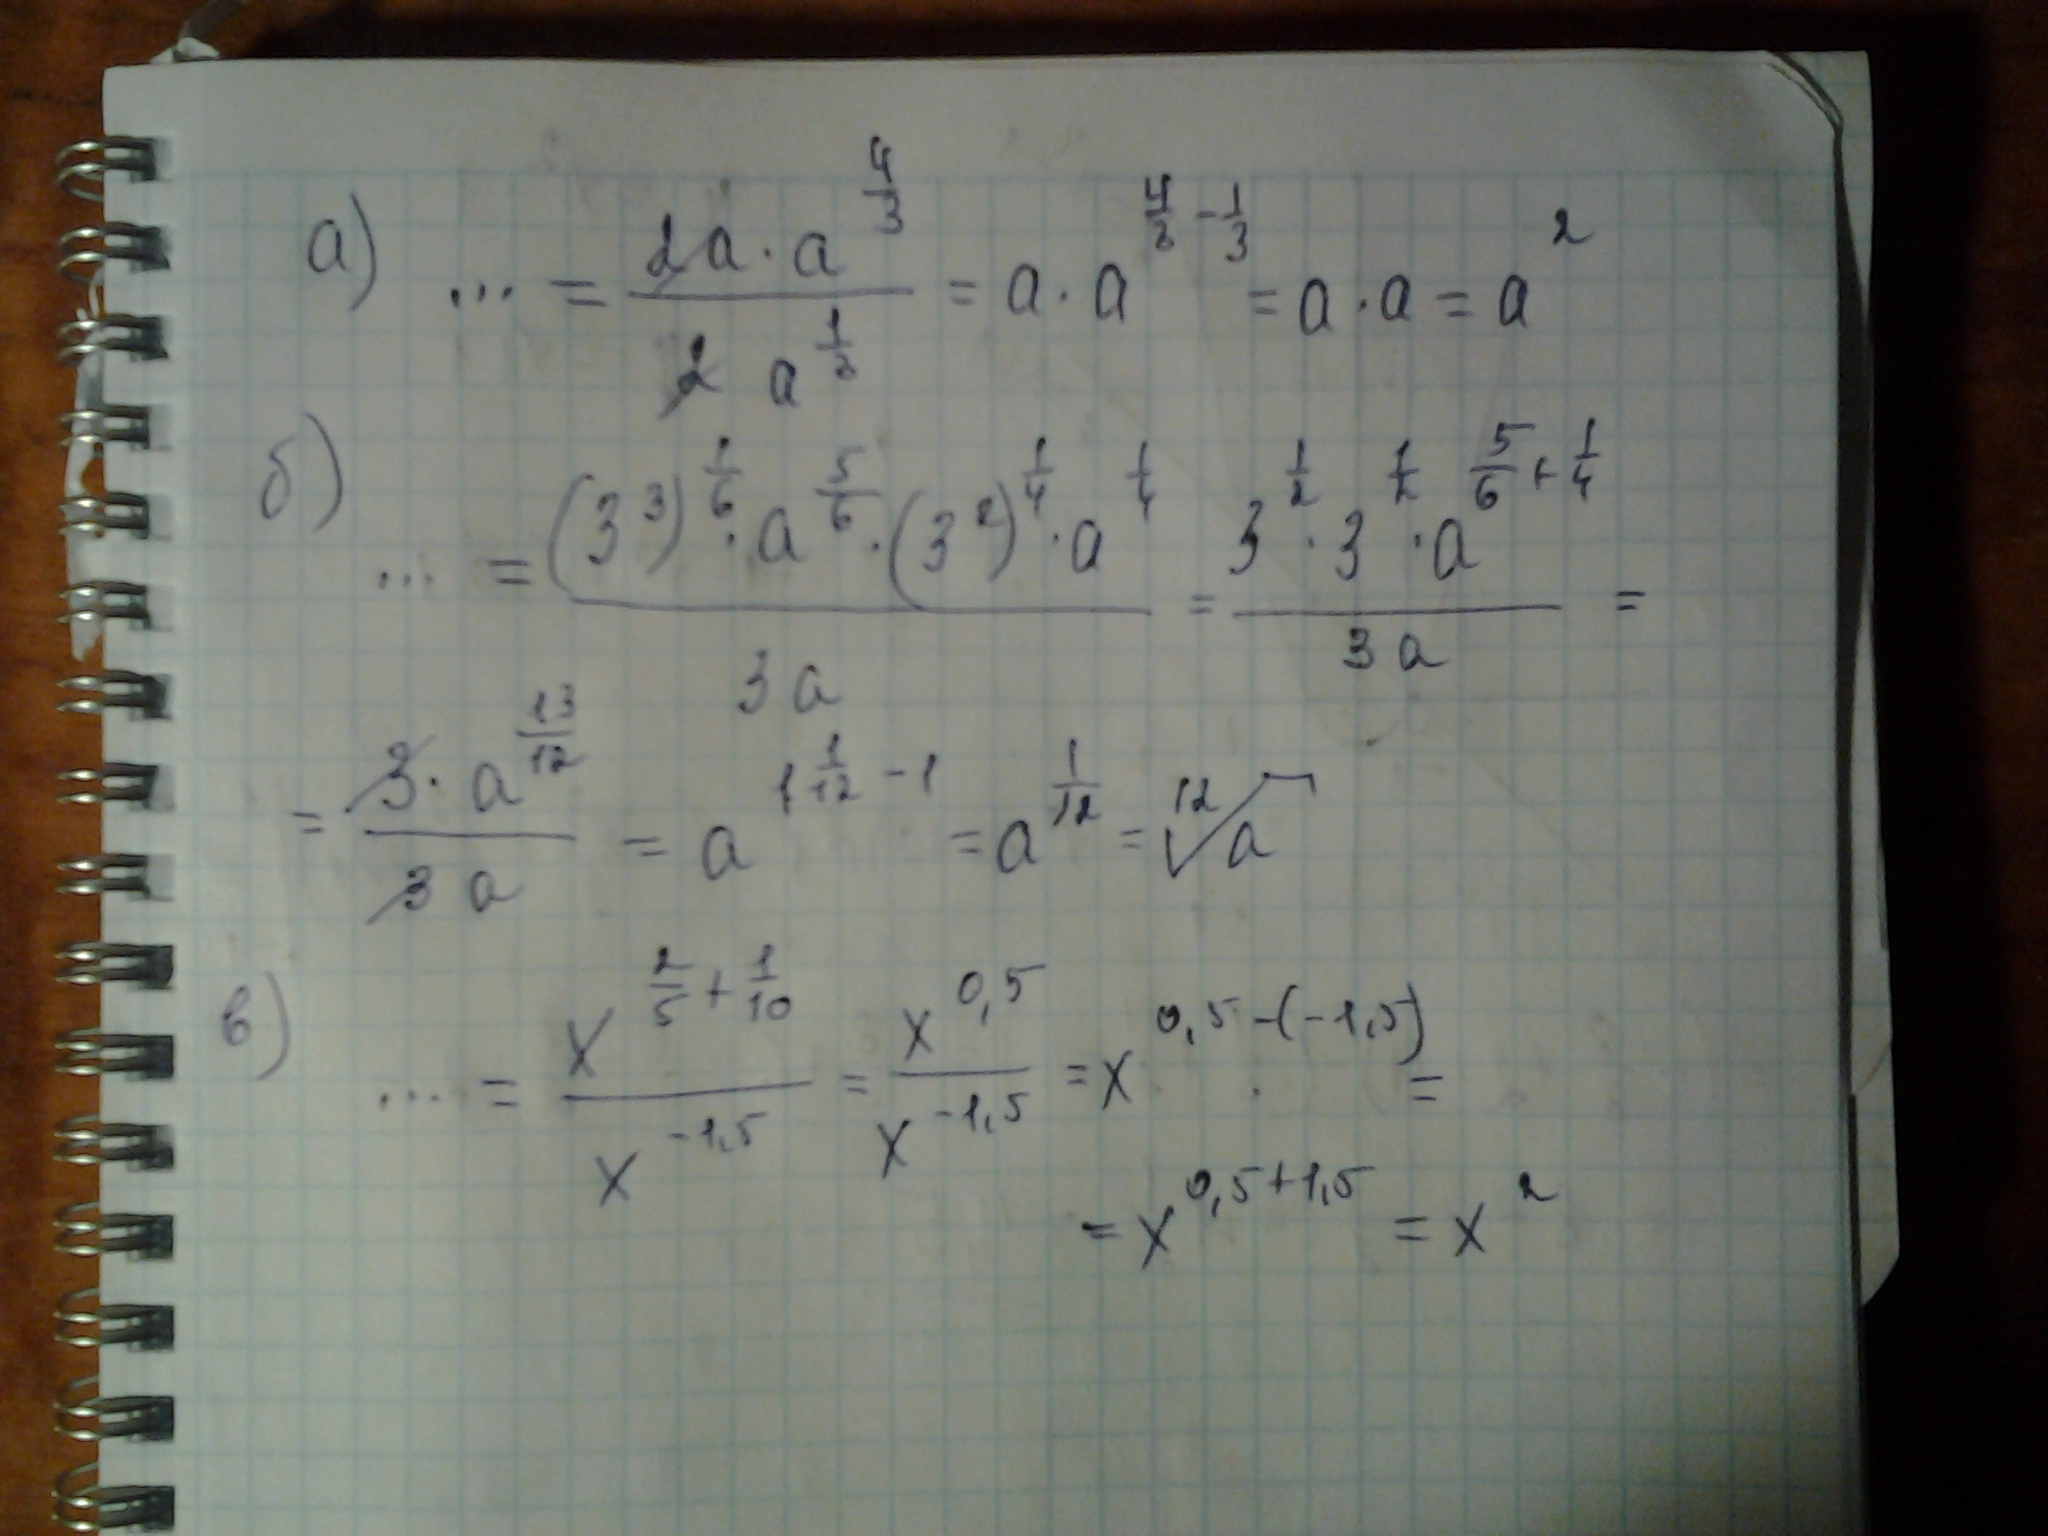 а) ... = \frac{2a \cdot a^{\frac{4}{3}}}{2 a^{\frac{1}{3}}} = a \cdot a^{\frac{4}{3} - \frac{1}{3}} = a \cdot a = a^2
б) ... = \frac{(3^3)^{\frac{1}{6}} \cdot a^{\frac{5}{6}} \cdot (3^2)^{\frac{1}{4}} \cdot a^{\frac{1}{4}}}{3a} = \frac{3^{\frac{1}{2}} \cdot 3^{\frac{1}{2}} \cdot a^{\frac{5}{6} + \frac{1}{4}}}{3a} =
= \frac{3 \cdot a^{\frac{13}{12}}}{3a} = a^{1\frac{1}{12} - 1} = a^{\frac{1}{12}} = \sqrt[12]{a}
в) ... = \frac{x^{\frac{2}{5} + \frac{1}{10}}}{x^{-1,5}} = \frac{x^{0,5}}{x^{-1,5}} = x^{0,5-(-1,5)} =
= x^{0,5+1,5} = x^2